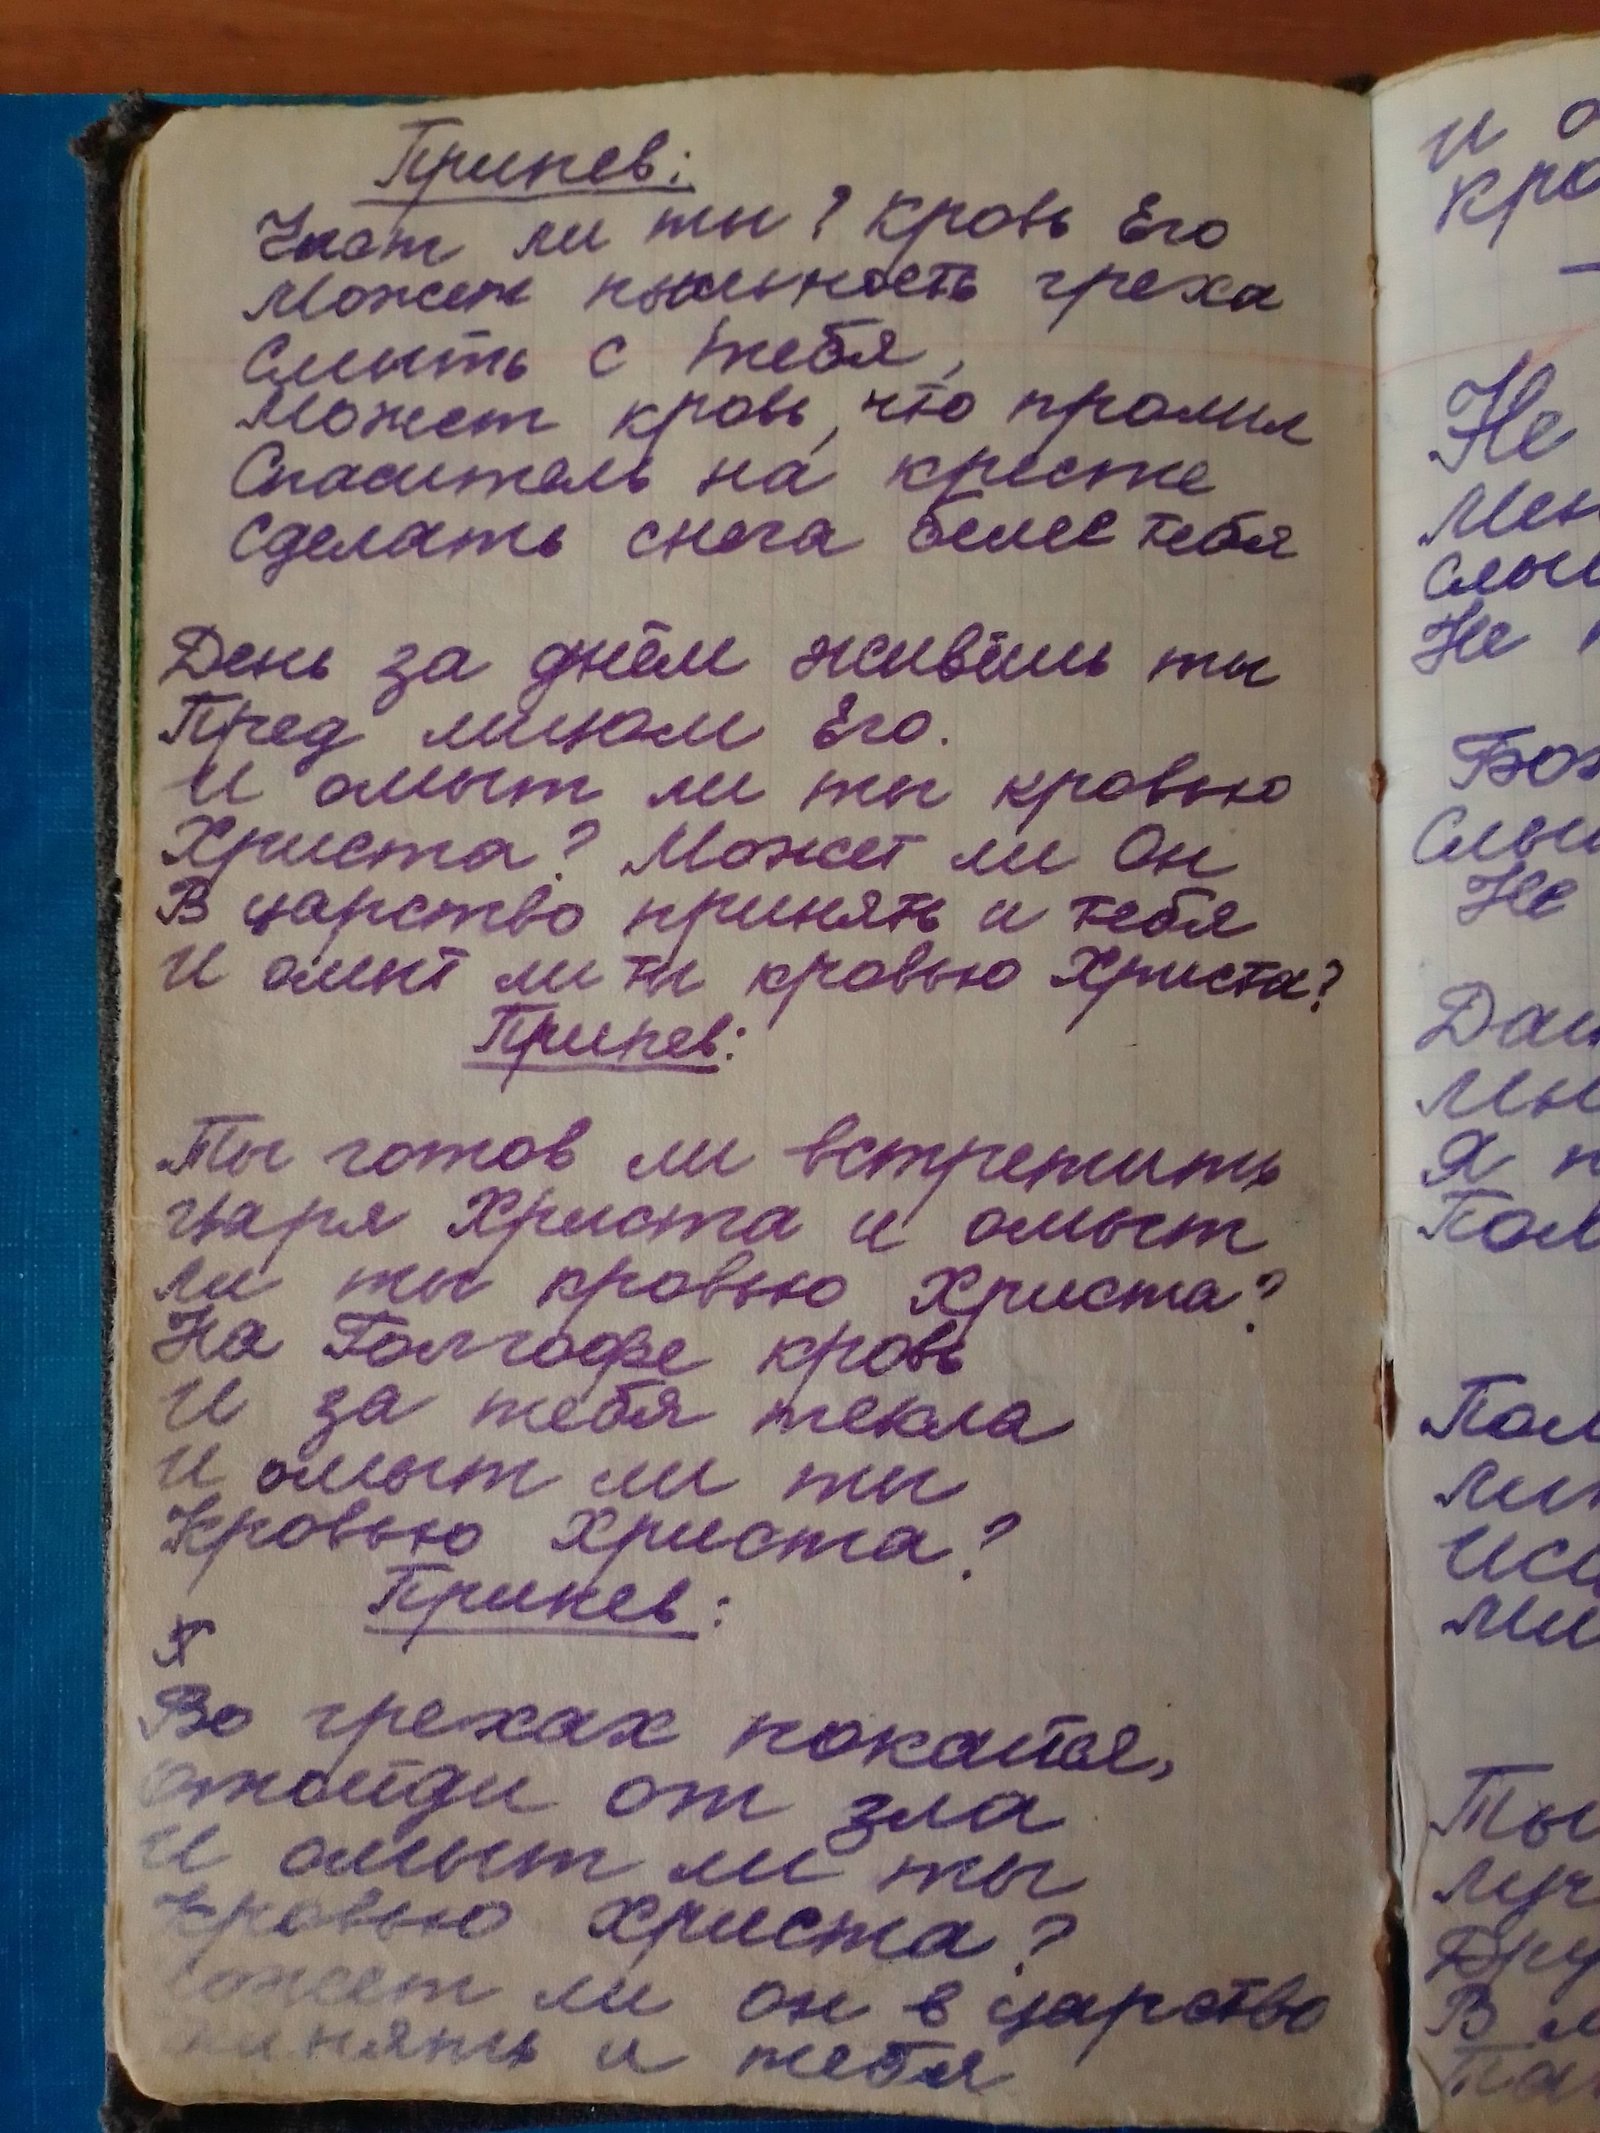 Припев:
Чист ли ты? Кровь Его
Может греха
Смыть с тебя,
Может кровь, что пролил
Спаситель на кресте
Сделать снега белее тебя
День за днём живёшь ты
Пред лицом Его.
И омыт ли ты кровью
Христа? Может ли Он
В царство принять и тебя
И омыт ли ты кровью Христа?
Припев:
Ты готов ли встретить
царя Христа и омыт
ли ты кровью Христа?
На Голгофе кровь
И за тебя текла
И омыт ли ты
Кровью Христа?
Припев:
Во грехах покайся,
отойди от зла
И омыт ли ты
Кровью Христа?
Может ли он в царство
принять и тебя
и
Кро
Не
Мен
Слы
Не
Бож
Слы
Не
Я п
Пол
Ты
Луч
Дру
В